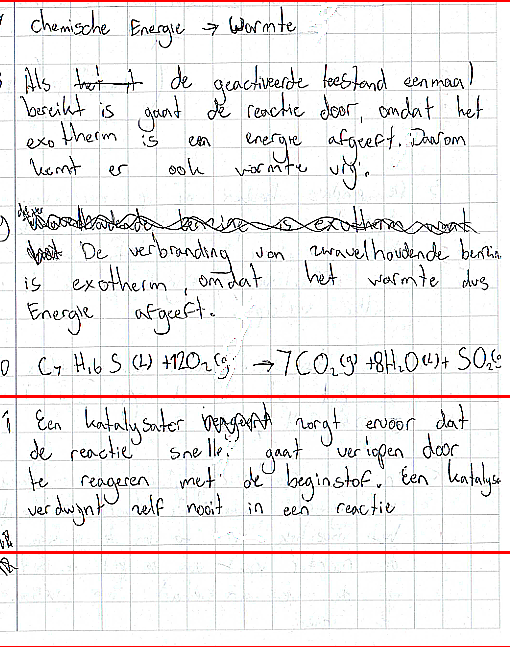 chemische Energie → Warmte
Als de geactiveerde toestand eenmaal
bereikt is gaat de reactie door, omdat het
exotherm is en energie afgeeft. Daarom
komt er ook warmte vrij.
De verbranding van zwavelhoudende benzin
is exotherm, omdat het warmte dus
Energie afgeeft.
0 C7 H16 S (l) +12O2(g) → 7CO2(g) +8H2O(l) + SO2(g
1 Een katalysator zorgt ervoor dat
de reactie sneller gaat verlopen door
te reageren met de beginstof. Een katalys
verdwijnt zelf nooit in een reactie